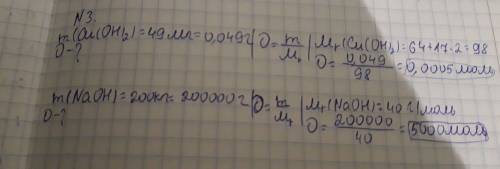 N3.
m(Cu(OH)₂)=49мг=0,049г | ϑ=m/Mr | Mr(Cu(OH)₂)=64+17·2=98
ϑ-? ϑ=0,049/98=0,0005моль
m(NaOH)=200кг=200000г | ϑ=m/Mr | Mr(NaOH)=40г/моль
ϑ-? ϑ=200000/40=5000моль